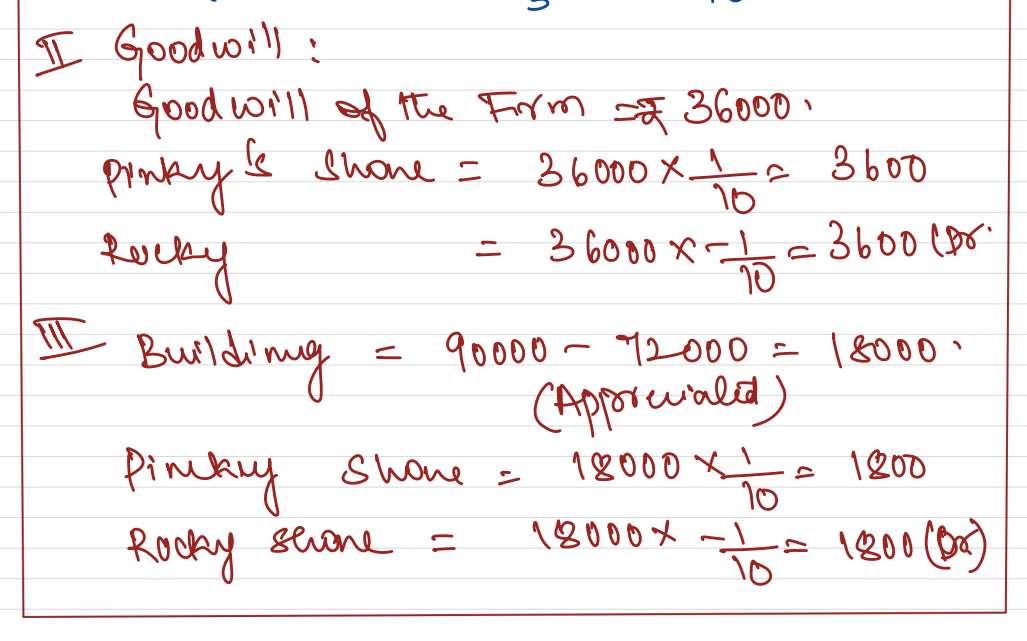 II Goodwill :
Goodwill of the Firm = ₹ 36000.
Pinky's Share = 36000 × 1/10 = 3600
Rocky = 36000 × -1/10 = 3600 (Dr.
III Building = 90000 - 72000 = 18000.
(Appreciated)
Pinky Share = 18000 × 1/10 = 1800
Rocky share = 18000 × -1/10 = 1800 (Dr)